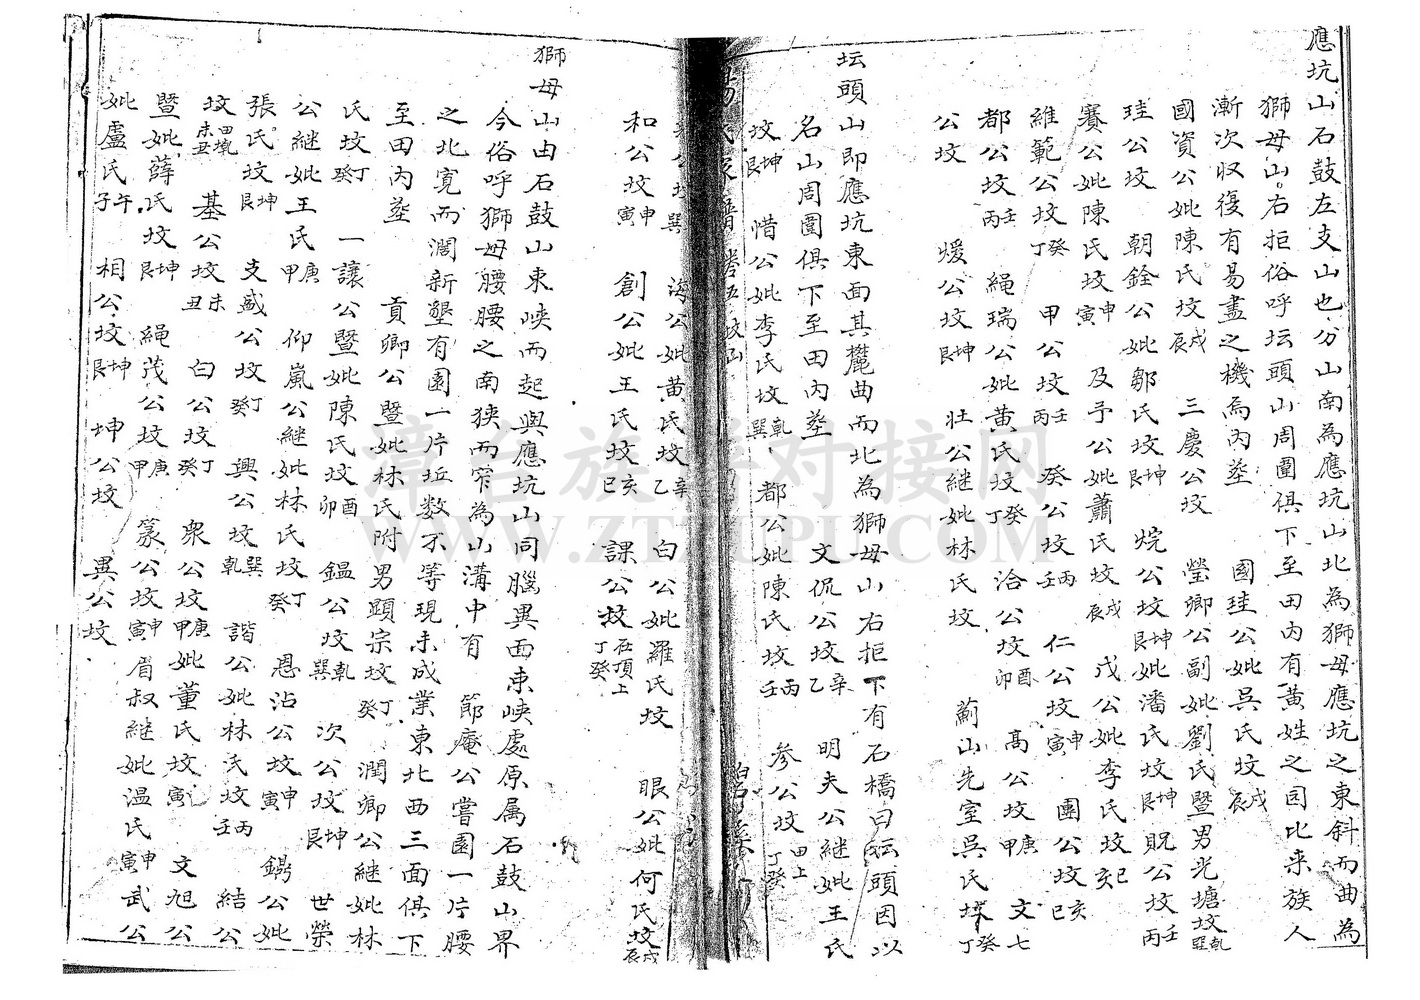 應坑山石鼓左支山也分山南為應坑山北為獅母應坑之東斜而曲為
獅母山右拒俗呼坛頭山周圍俱下至田內有黃姓之园比来族人
漸次収復有易盡之機為內塋
國資公妣陳氏坟戌辰 三慶公坟 國珪公妣吳氏坟戌辰
珪公坟 朝銓公妣鄒氏坟坤艮 瑩卿公副妣劉氏暨男光塘坟乾巽
賽公妣陳氏坟申寅 烷公坟坤艮妣潘氏坟坤艮 貺公坟壬丙
維範公坟癸丁 及予公妣蕭氏坟戌辰 戊公妣李氏坟巳亥
甲公坟壬丙 癸公坟丙壬 仁公坟申寅 團公坟亥巳
都公坟壬丙 繩瑞公妣黃氏坟癸丁 洽公坟酉卯 高公坟庚甲 文七
公坟 煖公坟坤艮 壯公継妣林氏坟 薊山先室吳氏坟癸丁
坛頭山即應坑東面其麓曲而北為獅母山右拒下有石橋曰坛頭因以
名山周圍俱下至田內塋 文侃公坟辛乙 明夫公継妣王氏
坟坤艮 惜公妣李氏坟乾巽 都公妣陳氏坟丙壬 参公坟田上丁癸
海公妣黃氏坟辛乙 白公妣羅氏坟 眼公妣何氏坟戌辰
和公坟申寅 創公妣王氏坟亥巳 課公坟石頂上丁癸
獅母山由石鼓山東峽而起與應坑山同腦異面東峽處原属石鼓山界
今俗呼獅母腰腰之南狹而窄為山溝中有 節庵公嘗園一片腰
之北寬而濶新墾有園一片坵数不等現未成業東北西三面俱下
至田內塋 貢卿公暨妣林氏附男顕宗坟丁癸 潤卿公継妣林
氏坟丁癸 一讓公暨妣陳氏坟酉卯 鎾公坟乾巽 次公坟坤艮 世榮
公継妣王氏庚甲 仰嵐公継妣林氏坟丁癸 恩沾公坟申寅 鐊公妣
張氏坟坤艮 支盛公坟丁癸 興公坟巽乾 諧公妣林氏坟丙壬 結公
坟田墘未丑 基公坟未丑 白公坟丁癸 衆公坟庚甲妣董氏坟寅 文旭公
暨妣薛氏坟坤艮 繩茂公坟庚甲 篆公坟申寅 眉叔継妣温氏申寅 武公
妣盧氏午子 相公坟坤艮 坤公坟 異公坟
漳台族谱对接网
WWW.ZTZUPU.COM